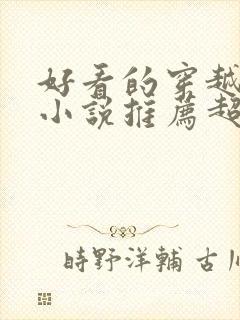 好看的穿越
小说推薦超
時野洋輔 古川